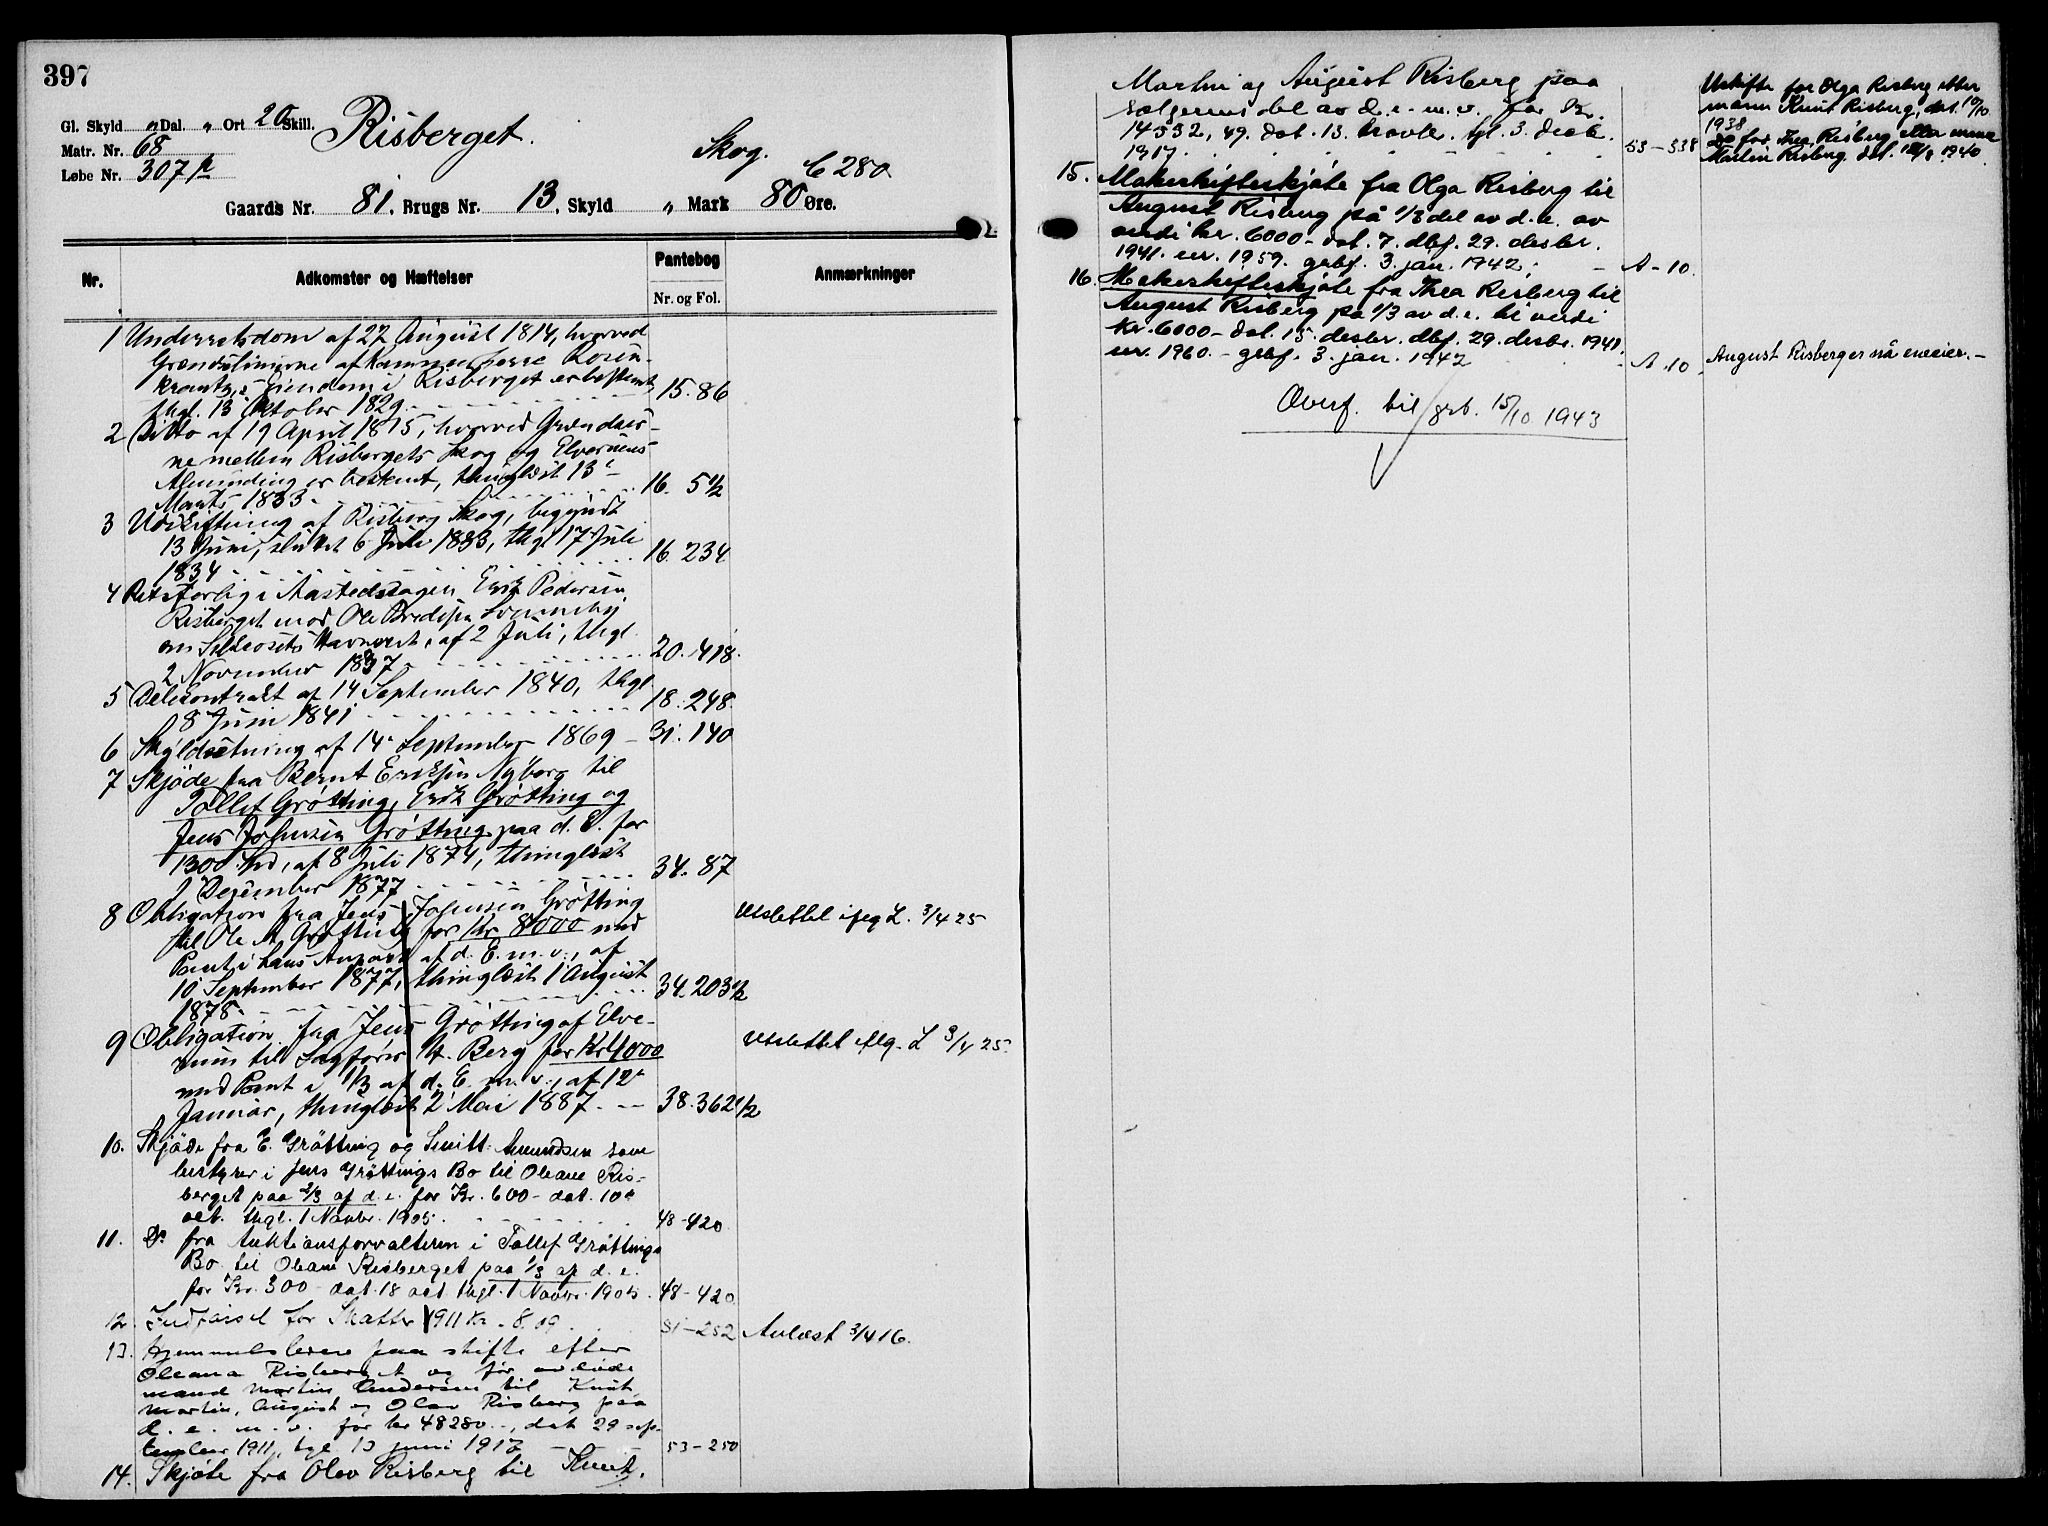 397
Gl. Skyld " Dal. " Ort 20 Skill.
Matr. Nr. 68
Løbe Nr. 307 p
Risberget.
Skog.
b 280
Gaards Nr. 81, Brugs Nr. 13, Skyld " Mark 80 Øre.
Nr. Adkomster og Hæftelser Pantebog Anmærkninger
Nr. og Fol.
1 Underretsdom af 22 August 1814, hvorved
Grændselinierne af Kammerherre Rosen-
krantz's Eiendom i Risberget er bestemt,
thgl. 13 Oktober 1829. 15. 86
2 Ditto af 19 April 1815, hvorved Grændser-
ne mellem Risbergets Skog og Elverums
Alminding er bestemt, thinglæst 13
Marts 1833. 16. 5 1/2
3 Udskiftning af Risberg Skog, begyndt
13 Juni, sluttet 6 Juli 1833, thgl 17 Juli
1834 16. 234
4 Retsforlig i Aastedssagen Erik Pedersen
Risberget mod Ole Svennsby
om Havneret, af 2 Juli, thgl.
2 November 1837 20. 418.
5 Delecontrakt af 14 September 1840, thgl
8 Juni 1841 18. 248.
6 Skyldsetning af 14 September 1869 - 31. 140
7 Skjøde fra Bernt Eriksen Nyberg til
Tollef Grøtting, Erik Grøtting og
Jens Johnsen Grøtting paa d. E. for
1300 Spd, af 8 Juli 1874, thinglæst
1 December 1877 34. 87
8 Obligation fra Jens Johnsen Grøtting
til Ole M. Grøtting for Kr 8000 med
Pant i hans Anpart af d. E. m. v., af
10 September 1877, thinglæst 1 August
1878. 34. 203 1/2 Utslettet iflg L. 3/4 25
9 Obligation fra Jens Grøtting af Elve-
rum til Sagfører H. Berg for Kr 1000
med Pant i 1/3 af d. E. m. v., af 12
Januar, thinglæst 2 Mai 1887. - 38. 362 1/2 Utslettet iflg. L 3/4 25.
10. Skjøde fra E. Grøtting og Smitt Amundsen som
bestyrer i Jens Grøttings Bo til Oleane Ris-
berget paa 2/3 af d. e. for Kr. 600 - dat. 10
oct. thgl. 1 Novbr. 1905. 48 - 420
11. Do fra Auktionsforvalteren i Tollef Grøttings
Bo til Oleane Risberget paa 1/3 af d. e.
for Kr. 300 - dat. 18 oct thgl. 1 Novbr. 1905. 48 - 420
12. Indførsel for Skatter 1911 Kr. 8.09 51 - 252 Avlæst 3/4 16.
13. Hjemmelsbrev paa skifte efter
Oleana Risberget og før avdøde
mand Martin Andersen til Knut,
Martin, August og Olav Risberg paa
d. e. m. v. for kr 48280.-, dat 29 sep-
tember 1911, tgl. 13 juni 1917 - 53 - 250
14. Skjøte fra Olav Risberg til Knut,
Martin og August Risberg paa
sælgerens del av d. e. m. v. for Kr.
14532,49. dat. 13. novbr. tgl. 3. decbr.
1917. 53 - 338
Uskifte for Olga Risberg etter
mann Knut Risberg, dat. 10/10
1938
Do for Thea Risberg etter mann
Martin Risberg dat. 1940.
15. Makeskifteskjøte fra Olga Risberg til
August Risberg på 1/3 del av d. e. av
verdi kr. 6000 - dat. 7. dbf. 29. desbr.
1941. nr. 1959. grbf. 3. jan. 1942. - A - 10.
16. Makeskifteskjøte fra Thea Risberg til
August Risberg på 1/3 av d. e. til verdi
kr. 6000 - dat. 15. desbr. dbf. 29. desbr. 1941.
nr. 1960. - grbf. 3. jan. 1942 A. 10 August Risberg er nå eneeier. -
Overf. til grb. 15/10 1943